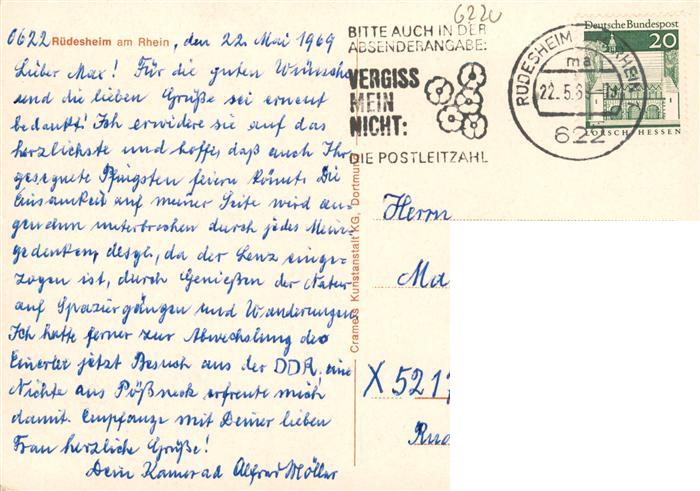 0622 Rüdesheim am Rhein, den 22. Mai 1969
Lieber Max! Für die guten Wünsche
und die lieben Grüße sei erneut
bedankt! Ich erwidere sie auf das
herzlichste und hoffe, daß auch Ihr
gesegnete Pfingsten feiern könnt. Die
Einsamkeit auf meiner Seite wird an-
genehm unterbrochen durch jedes
gedenken, desgl., da der Lenz einge-
zogen ist, durch Genießen der Natur
auf Spaziergängen und Wanderungen
Ich hatte ferner zur Abwechslung des
Einerlei jetzt Besuch aus der DDR, eine
Nichte aus Pößneck erfreute mich
damit. Empfange mit Deiner lieben
Frau herzliche Grüße!
Dein Kamerad Alfred Möller
Cramers Kunstanstalt KG, Dortmund
6220
BITTE AUCH IN DER
ABSENDERANGABE:
VERGISS
MEIN
NICHT:
DIE POSTLEITZAHL
RÜDESHEIM RHEIN
ma
22.5.6
622
Deutsche Bundespost
20
LORSCH/HESSEN
Herrn
Ma
X 521
Rud